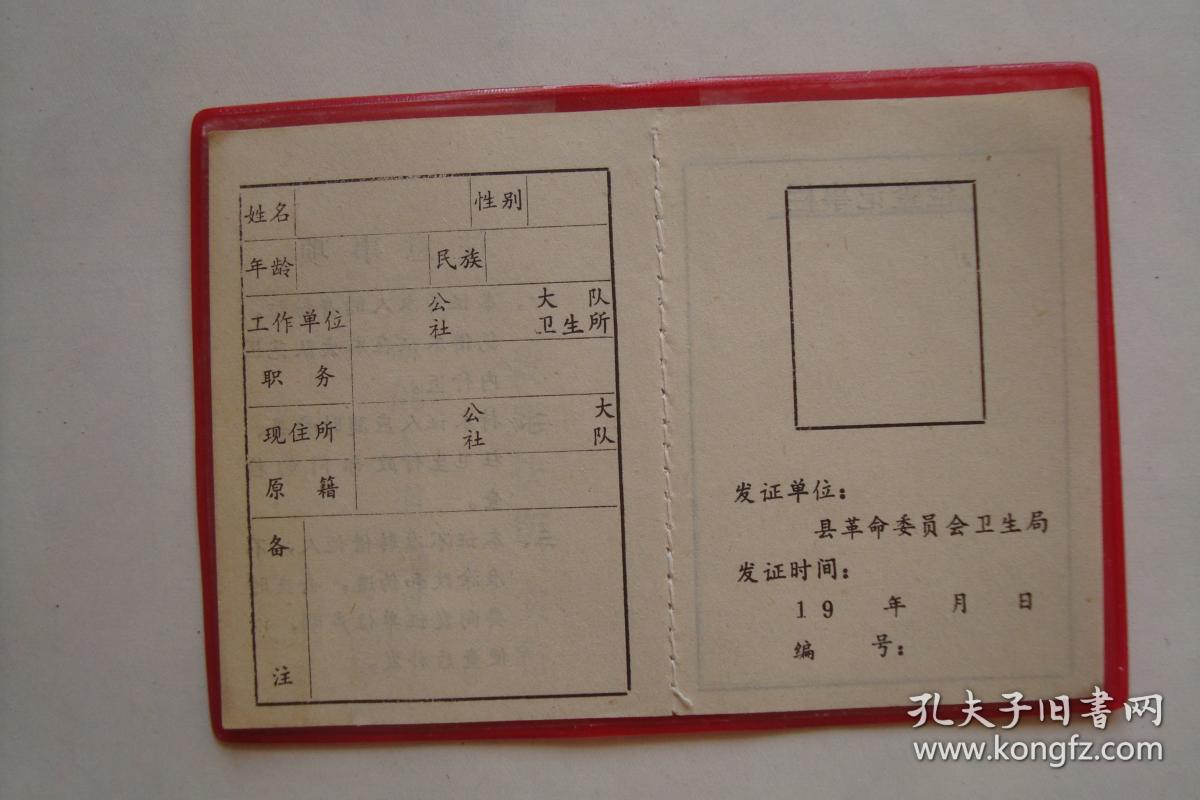 姓名 性别
年龄 民族
工作单位 公社 大队卫生所
职务
现住所 公社 大队
原籍
备注
发证单位：
县革命委员会卫生局
发证时间：
19 年 月 日
编 号：
孔夫子旧书网
www.kongfz.com